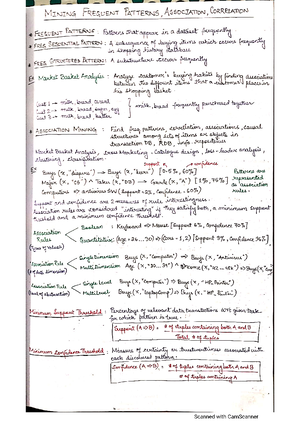 MINING FREQUENT PATTERNS, ASSOCIATION, CORRELATION
FREQUENT PATTERNS : Patterns that appear in a dataset frequently
FREQ SEQUENTIAL PATTERN : A subsequence of buying items which occurs frequently
in shopping history database
FREQ STRUCTURED PATTERN : A substructure occurs frequently
Market Basket Analysis : Analyse customer's buying habits by finding associations
between the different items that a customer places in
his shopping basket
Cust 1 - milk, bread, cereal
Cust 2 - milk, bread, sugar, egg
Cust 3 - milk, bread, butter
milk, bread frequently purchased together
ASSOCIATION MINING : Find freq patterns, correlation, associations, causal
structures among sets of items or objects in
transaction DB, RDB, info. repositories
Market Basket Analysis, Cross Marketing, Catalogue design, loss-leader analysis,
clustering, classification
Support confidence
Buys (x, "diapers") → Buys (x, "beers") [0.5%, 60%]
Major (x, "CS") ^ Takes (x, "DB") → Grade (x, "A") [1%, 75%]
Computers ⇒ antivirus SW [Support = 2%, Confidence = 60%]
Patterns are
represented
as association
rules
Support and confidence are 2 measures of rule interestingness.
Association rules are considered "interesting" if they satisfy both, a minimum support
threshold and a minimum confidence threshold.
Association
Rules
(Types of values)
Boolean : Keyboard ⇒ Mouse [Support 6%, Confidence 70%]
Quantitative:
Association Rule
Single Dimension Buys (x, "Computer") ⇒ Buys (x, "Antivirus")
Multi Dimension
Association
Rules
Single Level Buys (x, "Computer") ⇒ Buys (x, "HP Printer")
Multilevel Buys (x, "Laptop Comp") ⇒ Buys (x, "HP Printer")
Minimum Support Threshold : Percentage of relevant data transactions
for which pattern is true
Support (A ⇒ B) = # tuples containing both A and B
Total # tuples
Minimum Confidence Threshold : Measures of certainty or trustworthiness associated with
each discovered pattern
Confidence (A ⇒ B) = # tuples containing both A & B
# tuples containing A
Scanned with CamScanner